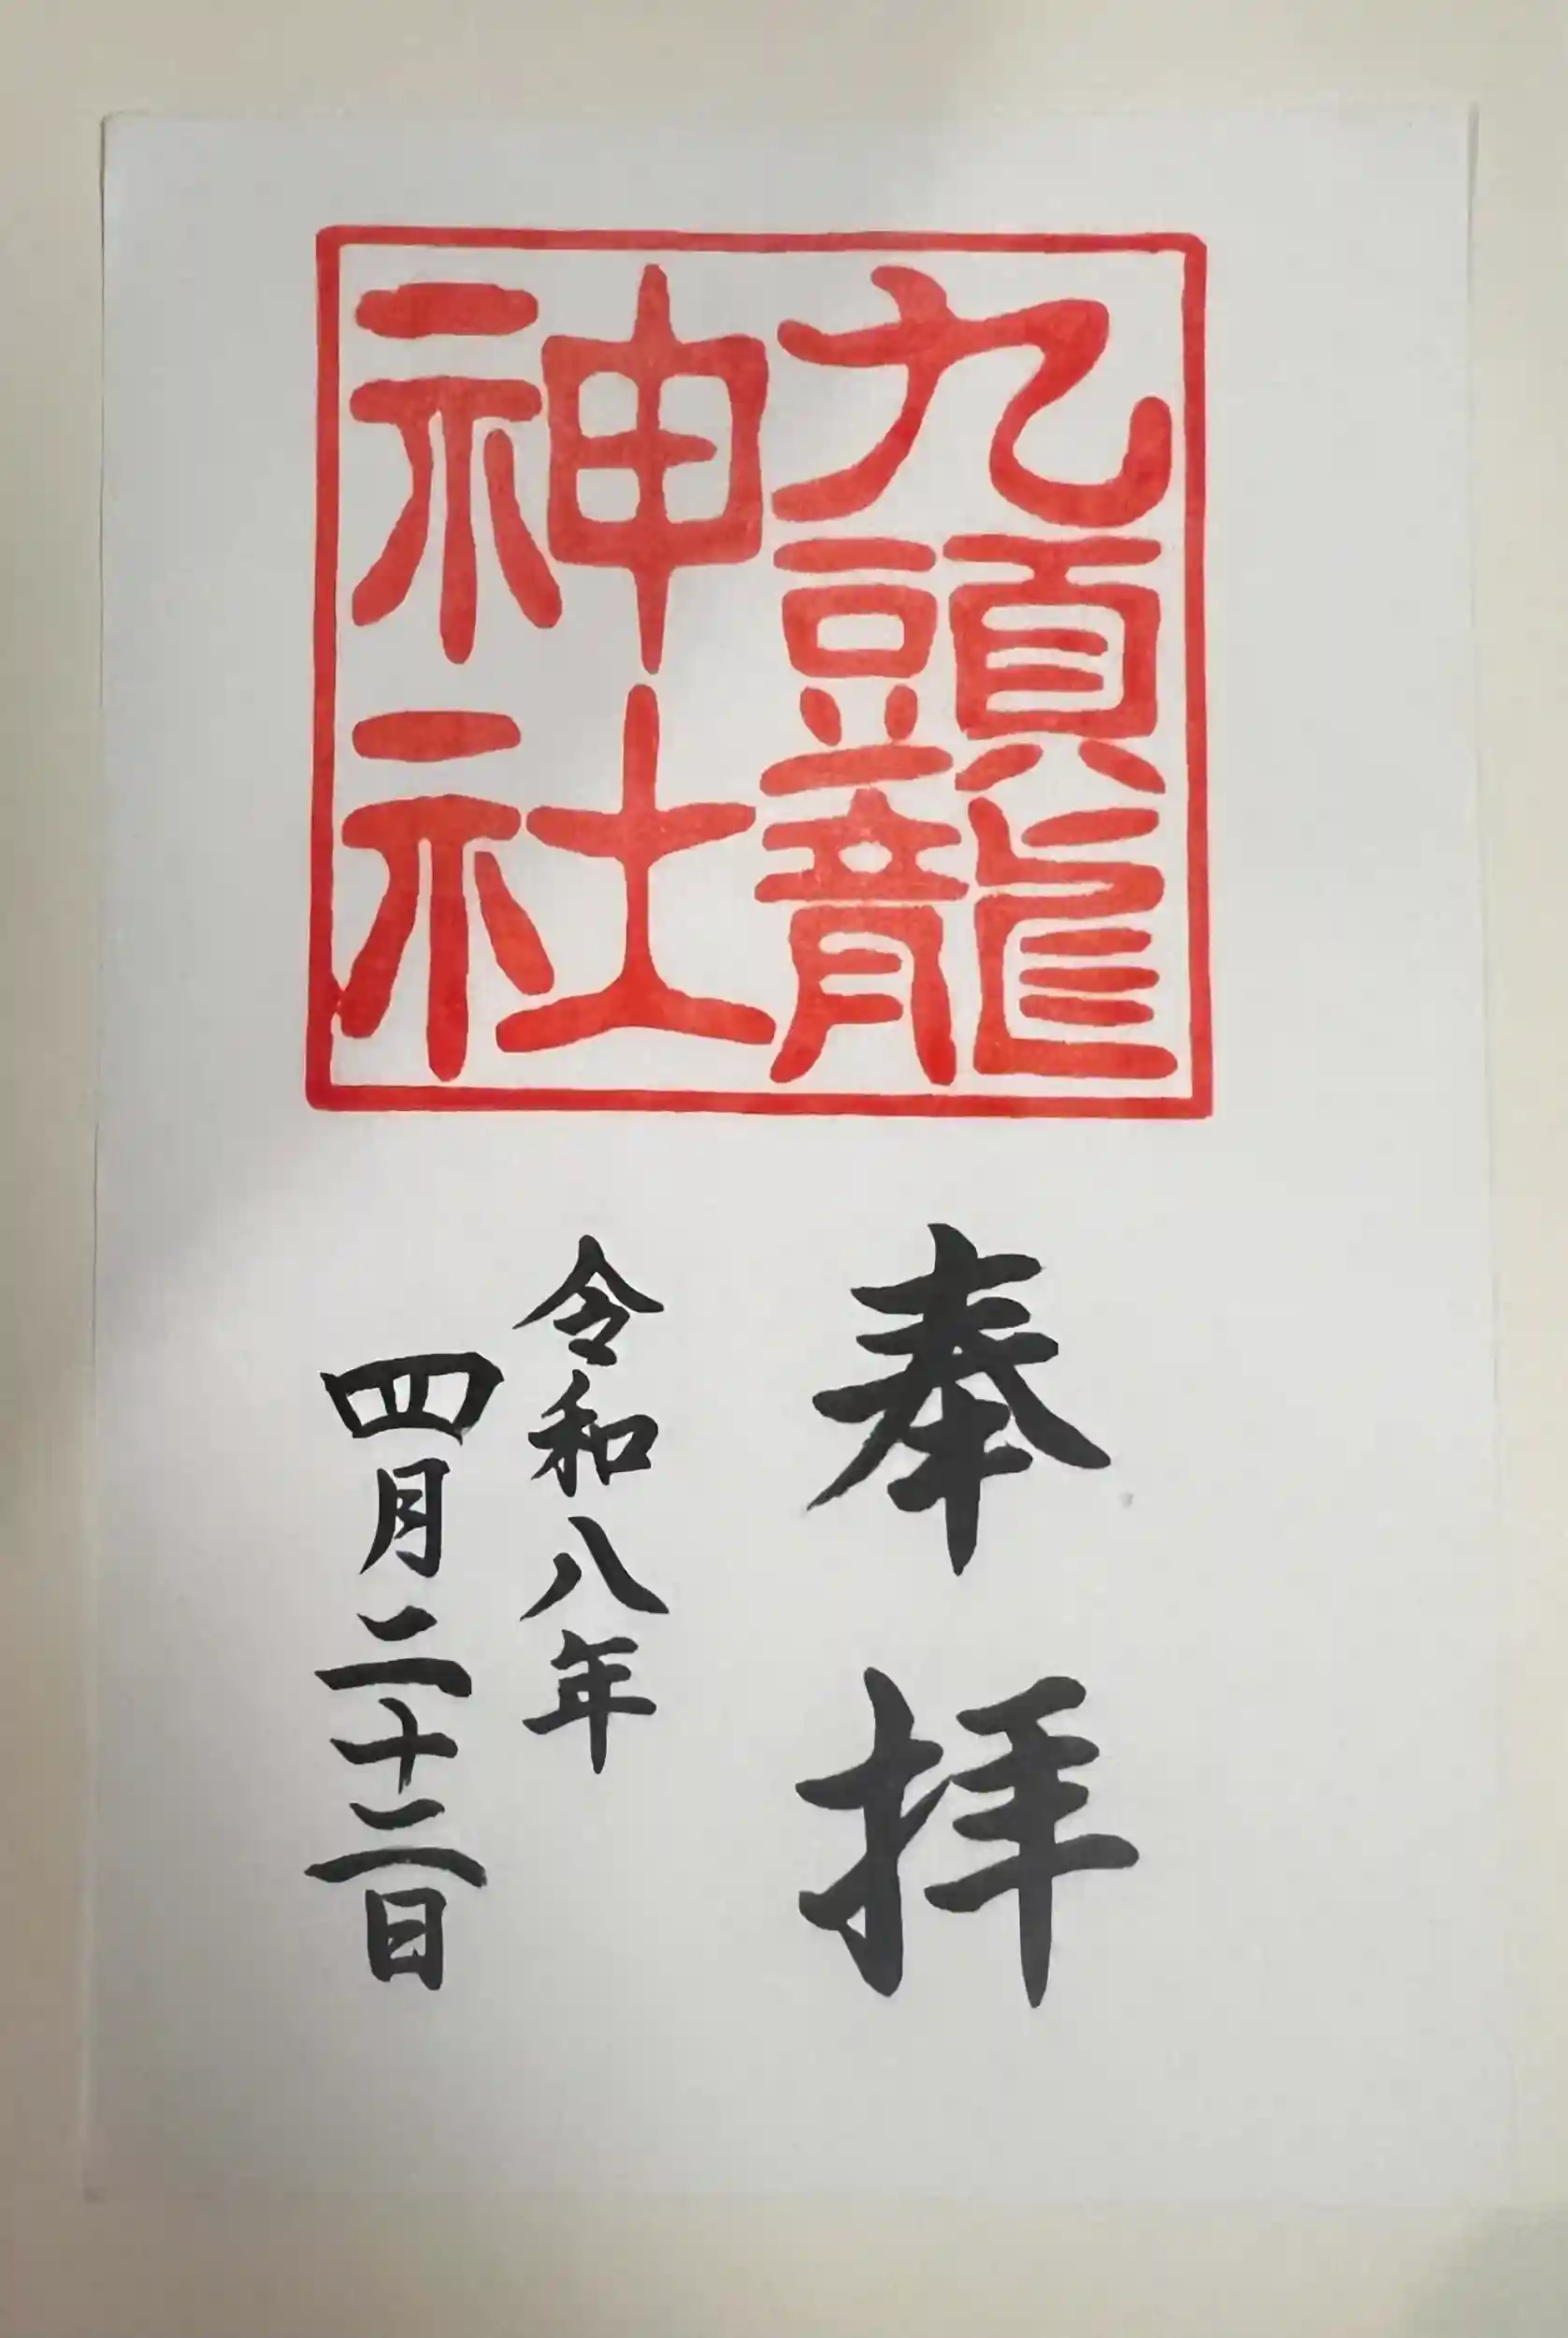 九頭龍
神社
奉拝
令和八年
四月二十二日